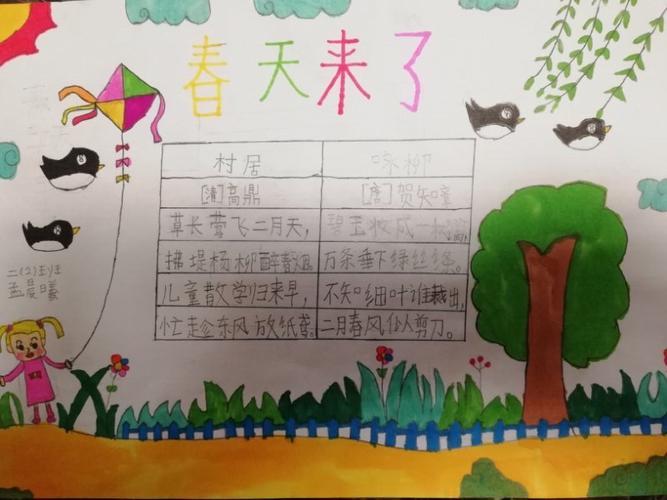 春天来了
村居 咏柳
[清]高鼎 [唐]贺知章
草长莺飞二月天, 碧玉妆成一树高,
拂堤杨柳醉春烟。 万条垂下绿丝绦。
儿童散学归来早, 不知细叶谁裁出,
忙趁东风放纸鸢。 二月春风似剪刀。
二(2)班
孟晨曦